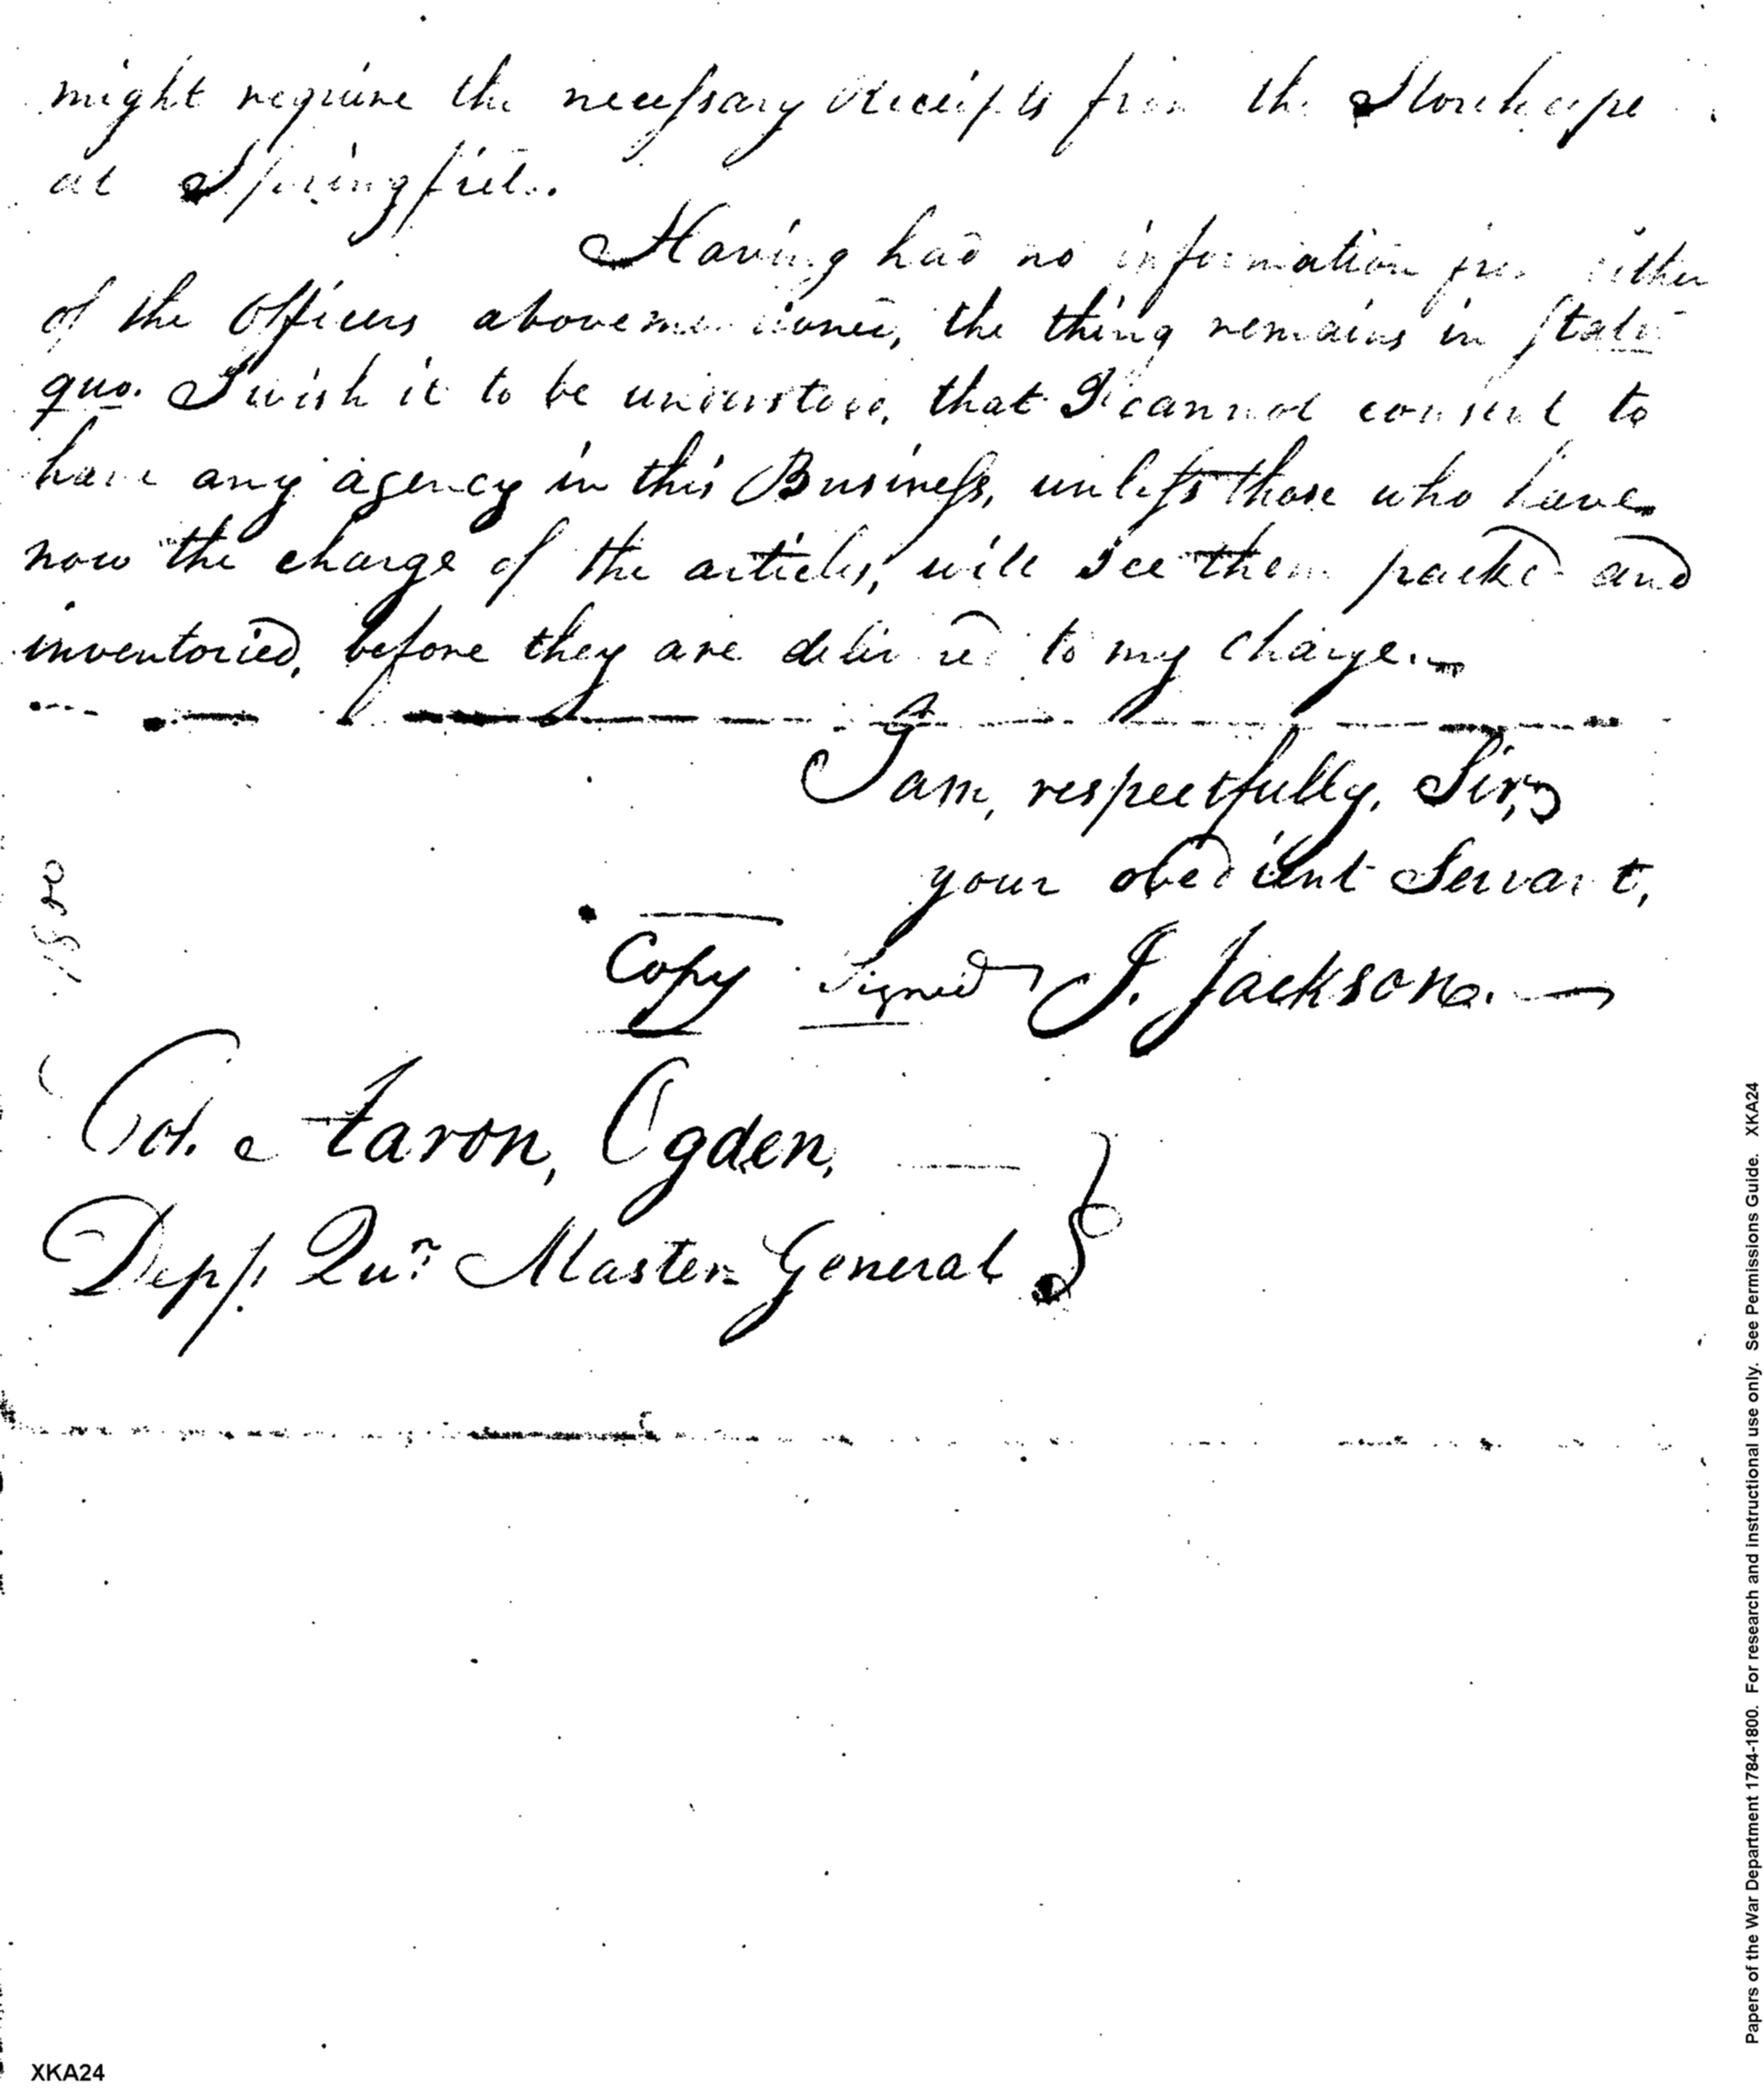 might require the necessary receipts from the Storekeeper
at Springfield.
Having had no information from either
of the Officers abovementioned, the thing remains in statu
quo. I wish it to be understood, that I cannot consent to
have any agency in this Business, unless those who have
now the charge of the articles, will see them packed and
inventoried, before they are delivered to my charge.
I am, respectfully, Sir,
your obedient Servant,
Copy Signed J. Jackson.
Col. Aaron, Ogden,
Depy. Qur. Master General
XKA24
Papers of the War Department 1784-1800. For research and instructional use only. See Permissions Guide. XKA24